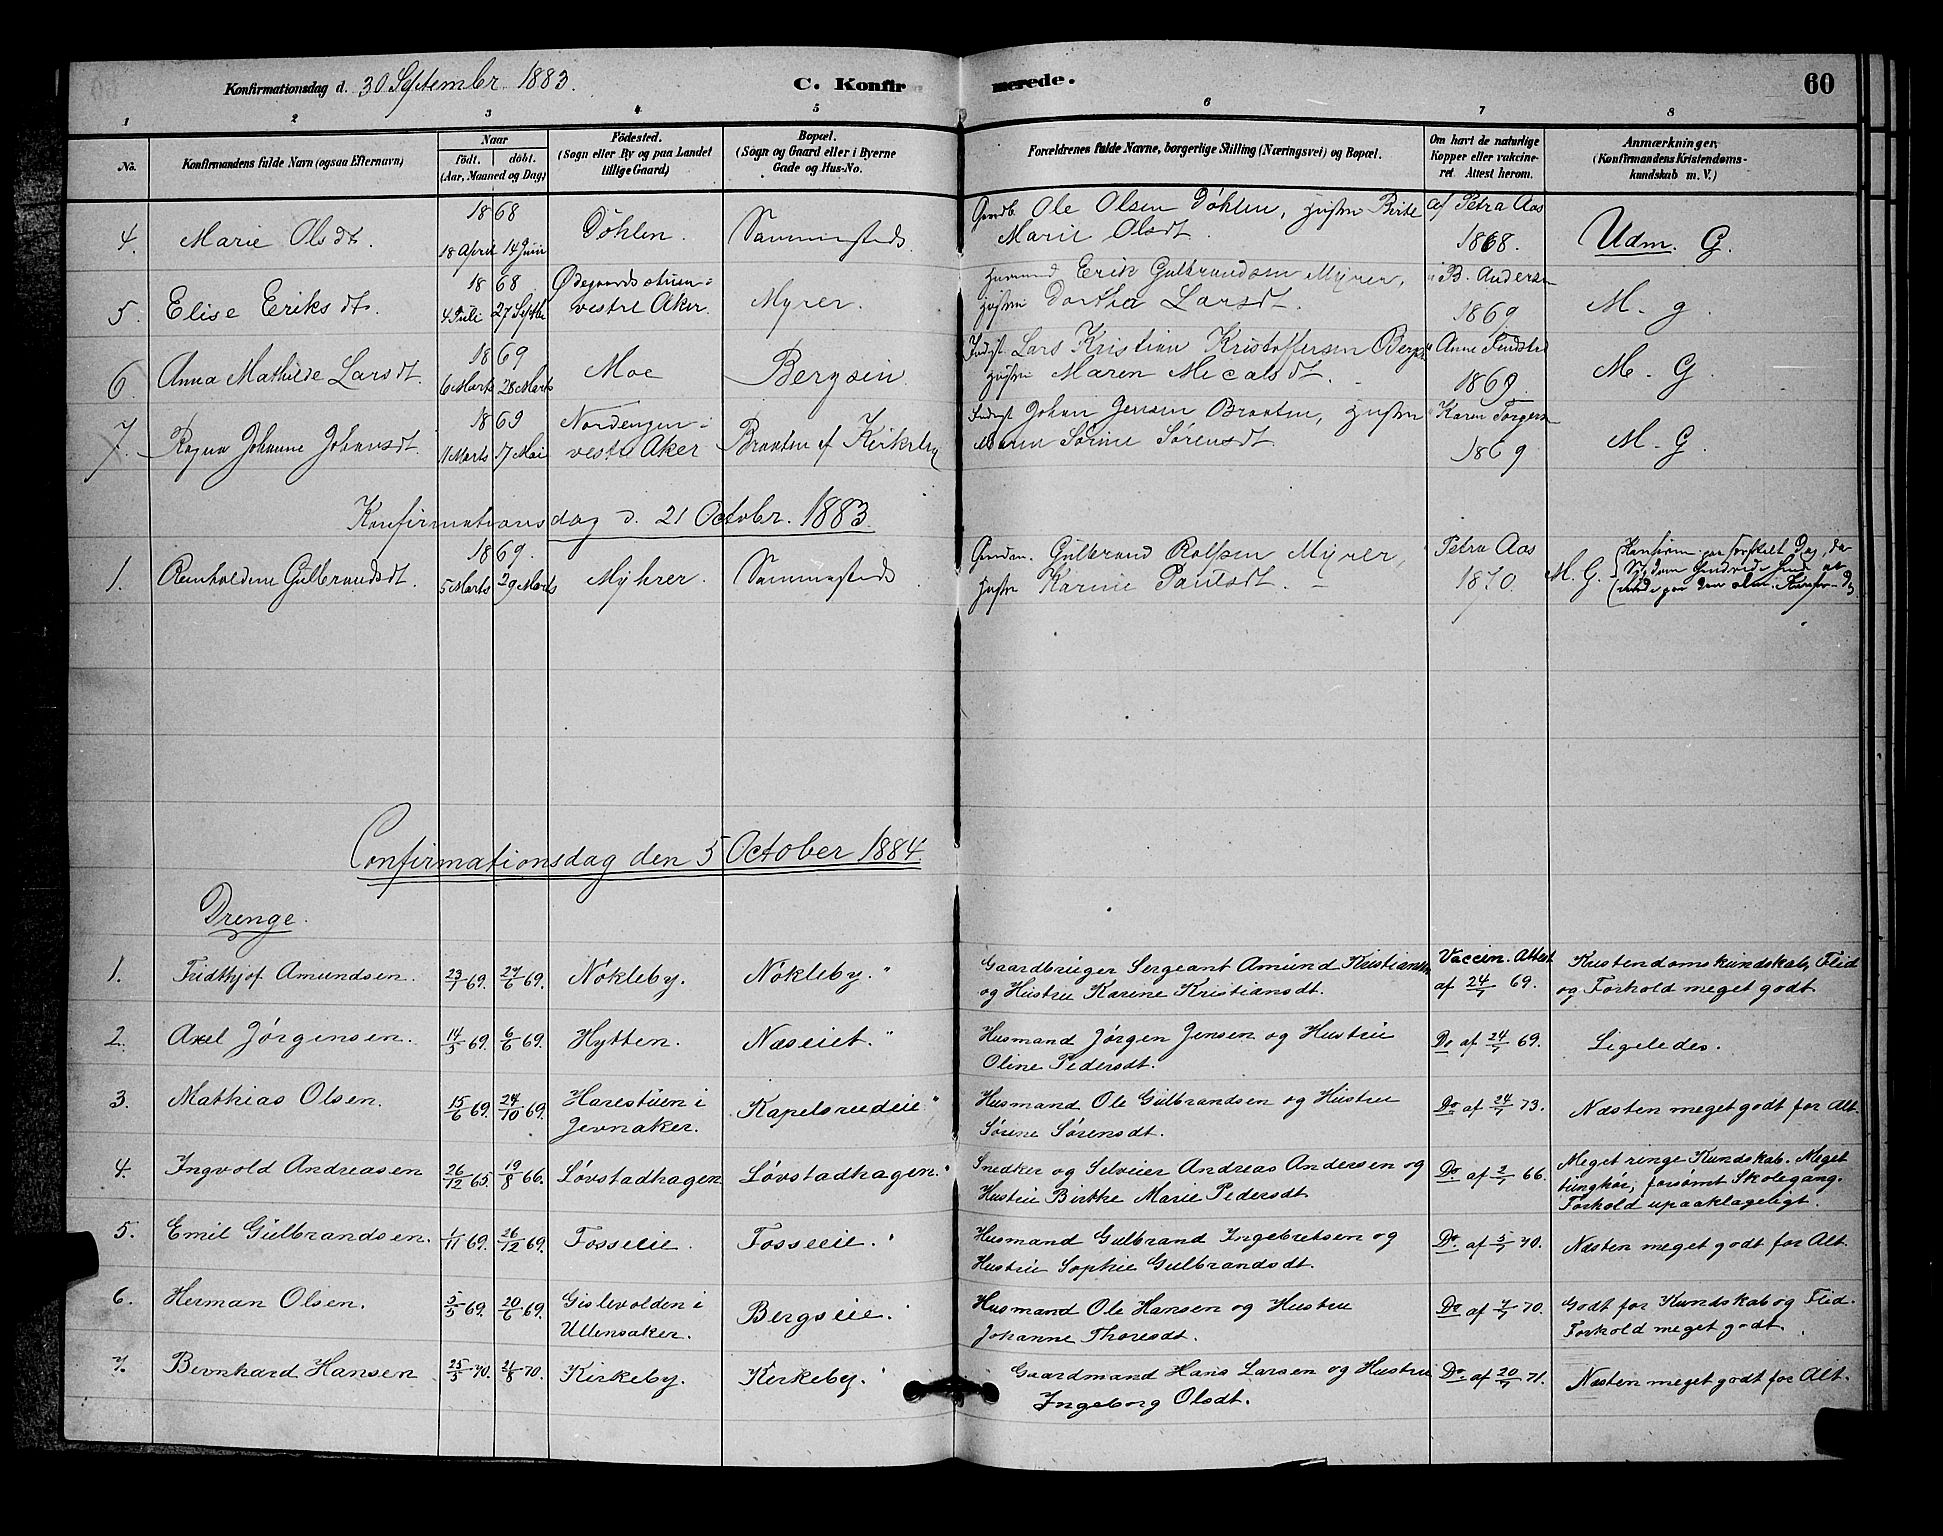 Konfirmationsdag d. 30 September 1883. C. Konfirmerede. 60
1 2 3 4 5 6 7 8
No. Konfirmandens fulde Navn (ogsaa Efternavn) Naar født. døbt. (Aar, Maaned og Dag) Födested. (Sogn eller By og paa Landet tillige Gaard) Bopæl. (Sogn og Gaard eller i Byerne Gade og Hus-No. Forældrenes fulde Navne, borgerlige Stilling (Næringsvei) og Bopæl. Om havt de naturlige Kopper eller vakcineret. Attest herom. Anmærkninger, (Konfirmandens Kristendomskundskab m. V.)
4. Marie Olsdt. 1868 18 April 14 Juni Döhlen. Sammesteds Gmdb. Ole Olsen Döhlen, Hustru Birte Marie Olsdt. af Petra Aas 1868. Udm. G.
5. Elise Eriksdt. 1868 4 Juli 27 Septbr Ødegaardsstuen i vestre Aker. Myrer. Husmand Erik Gulbrandsen Myrer, Hustru Dorthea Larsdt. " B. Andersen 1869 M. g.
6 Anna Mathilde Larsdt. 1869 6 Marts 28 Marts Moe Bergsein. Inderst Lars Kristian Kristoffersen Hustru Maren Micalsdt. " Anne 1869 M. G.
7. Ragna Johanne Johansdt. 1869 11 Marts 17 Mai Nordengen i vestre Aker Braaten af Kirkeby Inderst Johan Jensen Braaten, Hustru Maren Sørine Sørensdt. " Karen Torgersen 1869 M. G
Konfirmationsdag d. 21 Octobr. 1883.
1. Reinholdine Gulbrandsdt. 1869. 5 Marts 29 Marts Myhrer. Sammesteds Gulbrand Rolfsen Myrer, Hustru Karine Paulsdt. — Petra Aas 1870. M. G.
Confirmationsdag den 5 October 1884.
Drenge.
1. Fridthjof Amundsen. 23/1 69. 27/6 69. Nökleby. Nökleby. " Gaardbruger Sergeant Amund Kristiansen og Hustru Karine Kristiansdt. Vaccin. Attest af 24/7 69. Kristendomskundskab, Flid og Forhold meget godt
2. Axel Jörgensen. 14/5 69. 6/6 69. Hytten. Næseiet. " Husmand Jörgen Jensen og Hustru Oline Pedersdt. Do af 24/7 69. Ligeledes.
3. Mathias Olsen. 15/6 69. 24/10 69. Harestuen i Jevnaker. Kapelsrudeie. " Husmand Ole Gulbrandsen og Hustru Sörine Sörensdt. Do af 24/7 73. Næsten meget godt for Alt.
4. Ingvold Andreasen 26/12 65. 19/8 66. Lövstadhagen Lövstadhagen. " Snedker og Selveier Andreas Andersen og Hustru Birthe Marie Pedersdt. Do af 2/7 66. Meget ringe Kundskab. Meget tunghör, forsömt Skolegang. Forhold upaaklageligt.
5. Emil Gulbrandsen. 1/11 69. 26/12 69. Fosseie. Fosseie. " Husmand Gulbrand Ingebretsen og Hustru Sophie Gulbrandsdt. Do af 5/7 70. Næsten meget godt for Alt.
6. Herman Olsen. 5/5 69. 20/6 69. Gislevolden i Ullensaker. Bergseie. " Husmand Ole Hansen og Hustru Johanne Thoresdt. Do af 7/7 70. Godt for Kundskab og Flid. Forhold meget godt.
7. Bernhard Hansen 25/5 70. 21/8 70. Kirkeby. Kirkeby. " Gaardmand Hans Larsen og Hustru Ingeborg Olsdt. Do af 20/7 71. Næsten meget godt for Alt.